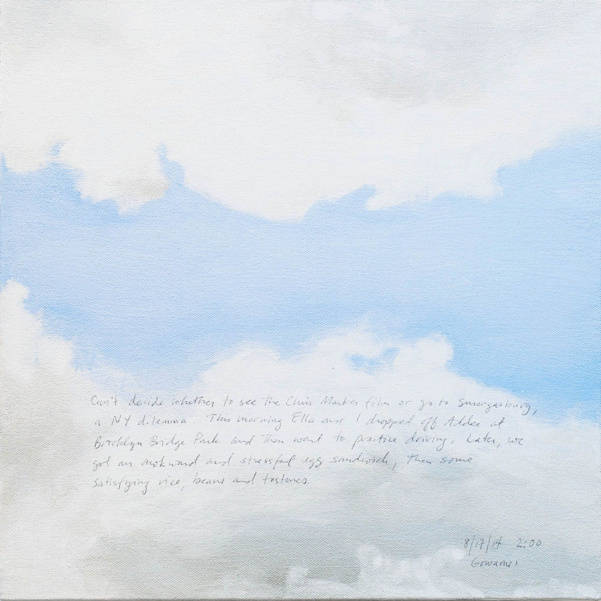 Can't decide whether to see the Chris Marker film or go to Smorgasburg,
a NY dilemma. This morning Ella and I dropped off Alden at
Brooklyn Bridge Park and then went to practice driving. Later, we
got an awkward and stressful egg sandwich, then some
satisfying rice, beans and tostones.
8/17/14 2:00
Gowanus